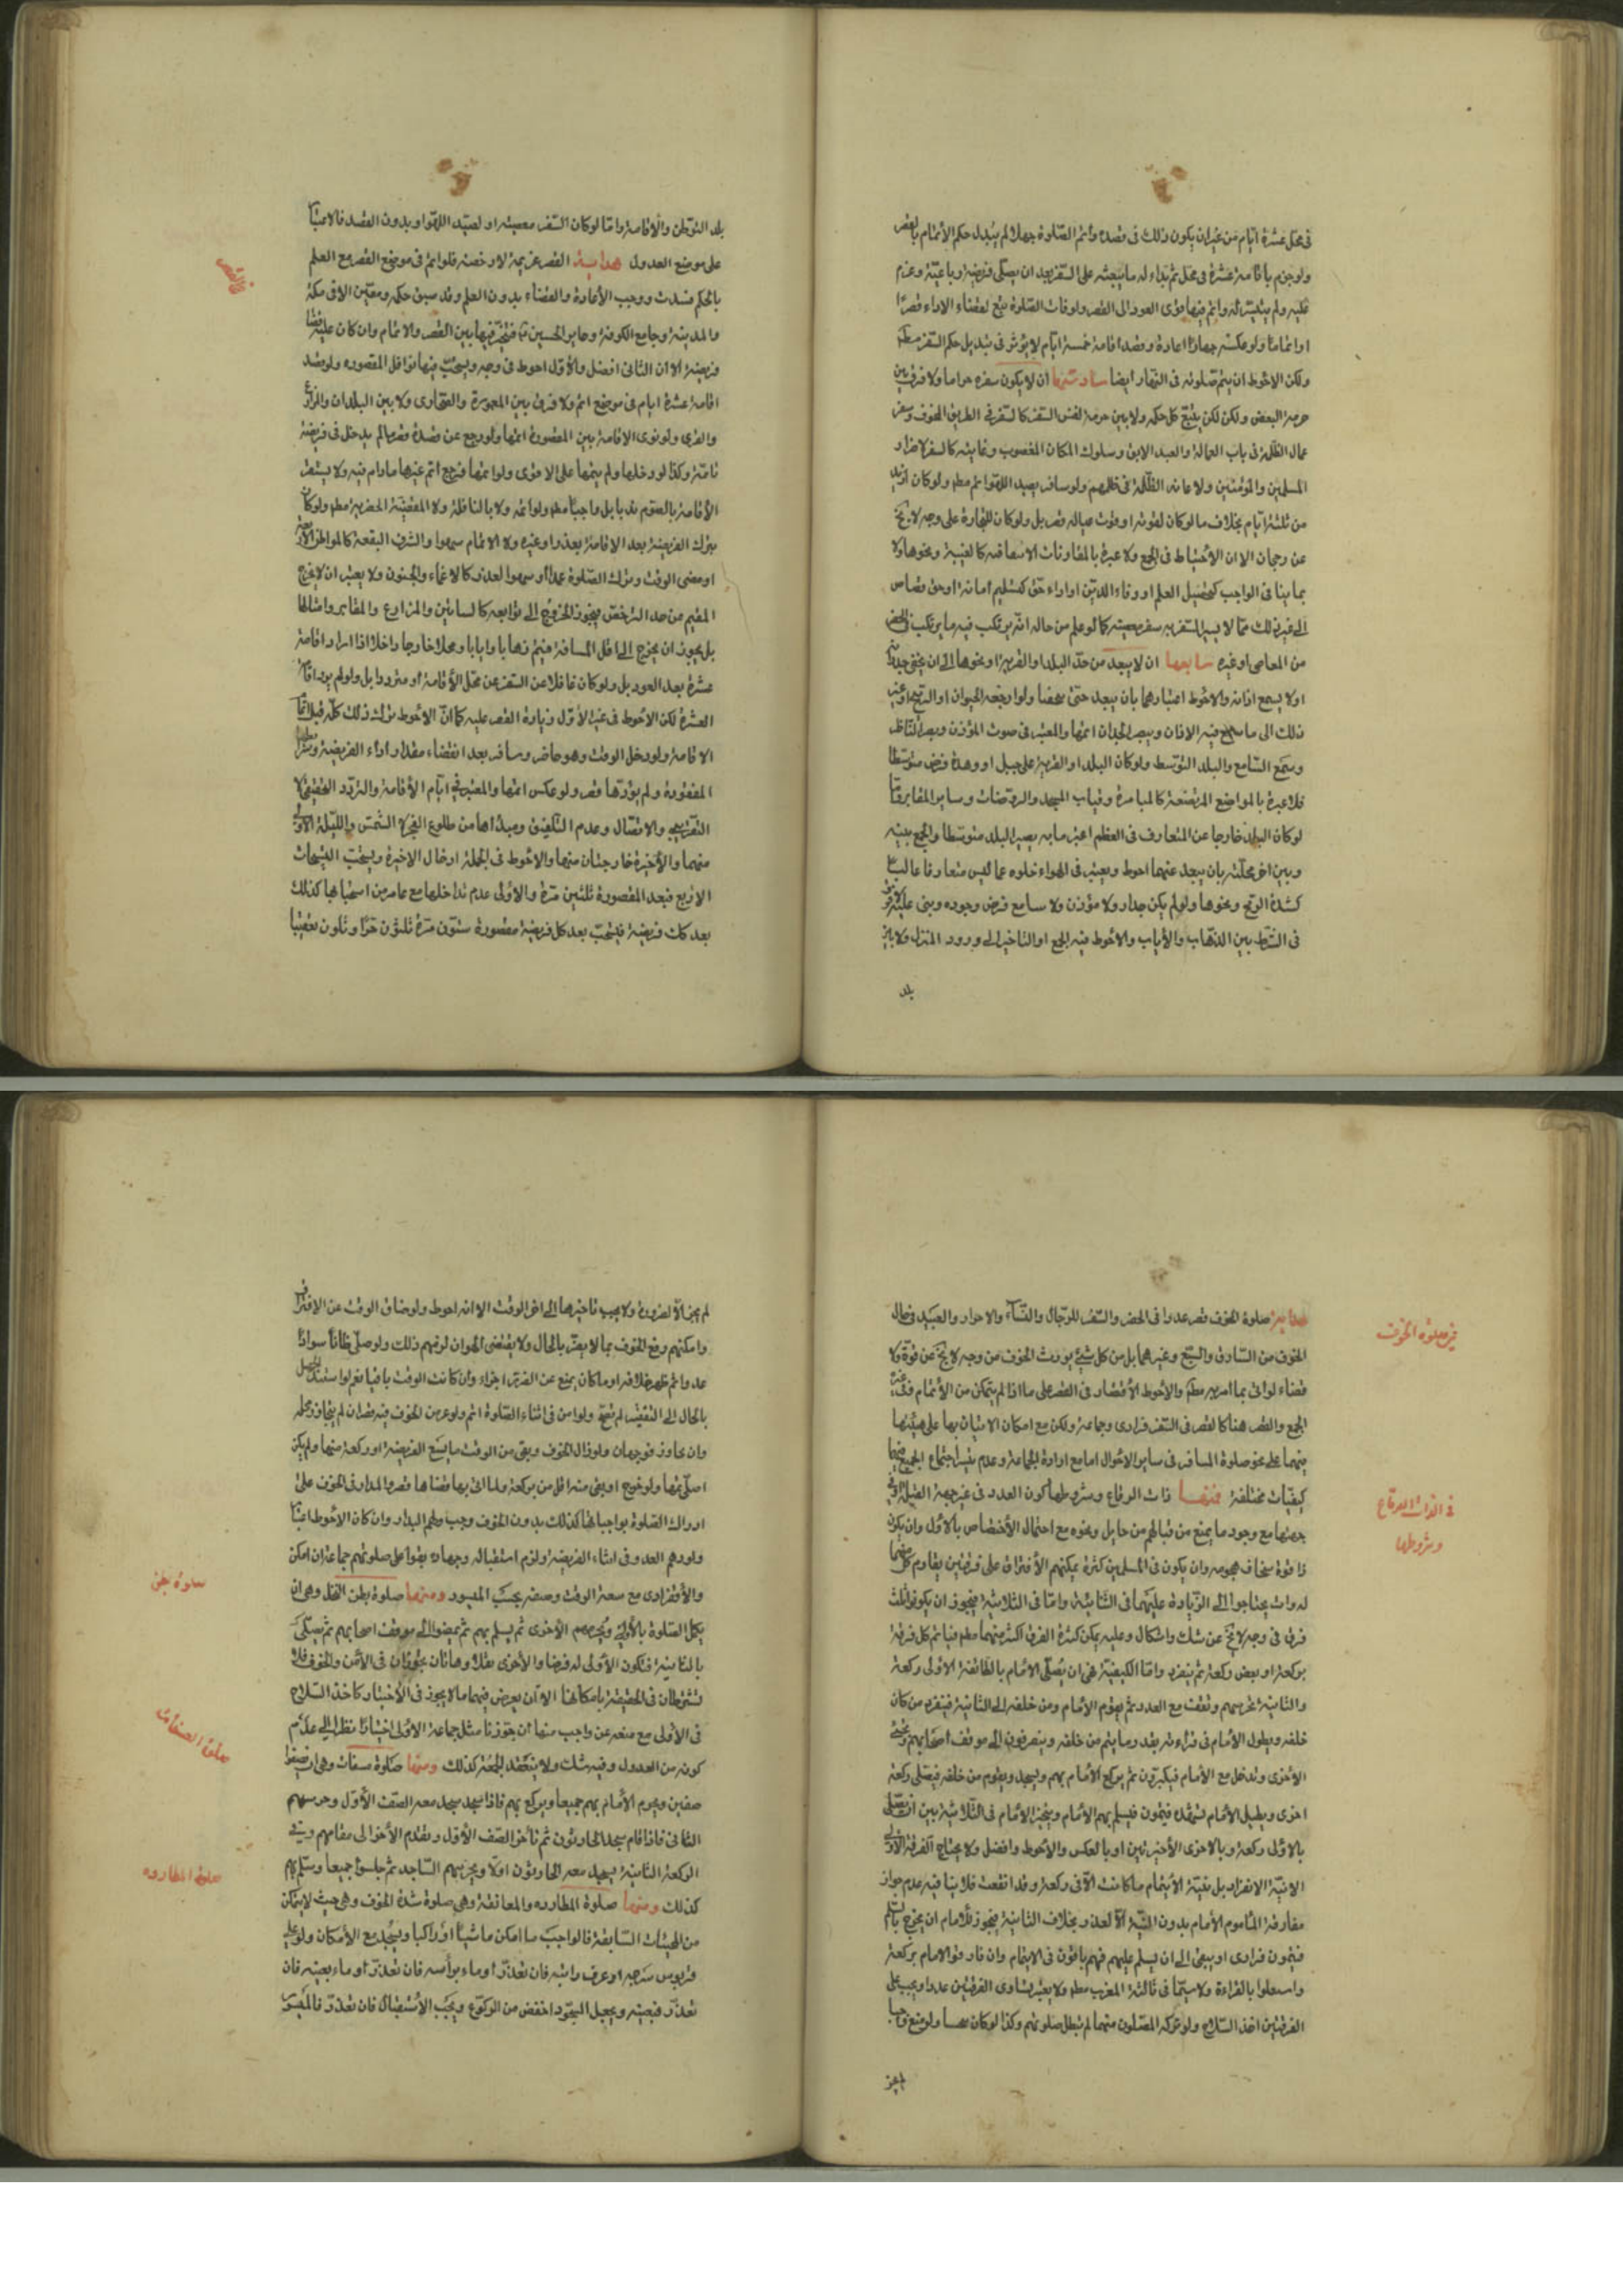 فى محل عشرة ايام من غير ان يكون ذلك فى قصده واتم الصلوة جهلا لم يتبدل حكم الاتمام بالقصر
ولو جزم باقامة عشرة فى محل ثم بداء له ما يبعثه على السفر بعد ان يصلى فريضة رباعية وعزم
عليه ولم يتيسر له واتم فيها
او اتماما ولو عكس جهلا اعادة وقصد اقامة خمسة ايام لا يؤثر فى تبديل حكم السفر مطلقا
ولكن الاحوط ان يتم صلوته فى النهار ايضا سادسها ان لا يكون سفره حراما ولا فرق بين
حرمة البعض ولكن لكن يتبع كل حكمه ولا بين حرمة نفس السفر كالسفر فى الطريق المخوف وسفر
عمال الظلمة فى باب العمالة والعبد الابق وسلوك المكان المغصوب وغايته كالسفر لاضرار
المسلمين والمؤمنين ولاعانة الظلمة فى ظلمهم ولو سافر بصيد اللهو اتم مطلقا ولو كان ازيد
من ثلثة ايام بخلاف ما لو كان لقوته او قوت عياله قصر بل ولو كان للتجارة على وجه لا يخ
عن رجحان الا ان الاحتياط فى الجمع ولا عبرة بالمقارنات الاتفاقية كالغيبة ونحوها ولا
بما ينافى الواجب كتحصيل العلم او وفاء الدين او اداء حق كتسليم امانة او حق قصاص
الى غير ذلك مما لا يسير السفر به سفر معصية كما لو علم من حاله انه يرتكب فيه ما يرتكب فى الحضر
من المعاصى او غيره سابعها ان لا يبعد من حد البلد او القرية او نحوها الى ان يخفى جدرانه
او لا يسمع اذانه والاحوط اعتبارهما بان يبعد حتى يخفيا ولو ارتفعه الحيوان او الريح او غير
ذلك الى ما يسمع فيه الاذان ويبصر الجدران اتمها والمعتبر فى صوت المؤذن وبصر الناظر
وسمع السامع والبلد التوسط ولو كان البلد او القرية على جبل او وهدة فرض متوسطا
فلا عبرة بالمواضع المرتفعة كالمنارة وقباب المسجد والروضات وساير المقابر
لو كان البلد خارجا عن المتعارف فى العظم اعتبر ما به يصير البلد متوسطا والجمع بينه
وبين اخر محلته بان يبعد عنهما احوط ويعتبر فى الهواء خلوه عما ليس متعارفا غالبا
كشدة الريح ونحوها ولو لم يكن جدار ولا مؤذن ولا سامع فرض وجوده وبنى عليه ولا فرق
فى الشرط بين الذهاب والاياب والاحوط فيه الجمع او التاخير الى ورود المنزل ولا بين
بلد
بلد التوطن والاقامة واما لو كان السفر معصية او لصيد اللهو او بدون القصد فالاعتبار
على موضع العدول هداية القصر عزيمة لا رخصة فلو اتم فى موضع القصر مع العلم
بالحكم فسدت ووجب الاعادة والقضاء بدون العلم وقد سبق حكمه ويتعين الا فى مكة
والمدينة وجامع الكوفة وحاير الحسين ع فيتخير فيها بين القصر والاتمام وان كان عليه قضاء
فريضة الا ان الثانى افضل والاول احوط فى وجه ويستحب فيها نوافل المقصورة ولو قصد
اقامة عشرة ايام فى موضع اتم ولا فرق بين المعمورة والصحارى ولا بين البلدان والمزارع
والقرى ولو نوى الاقامة بين المقصورة اتمها ولو رجع عن قصده قصر ما لم يدخل فى فريضة
تامة وكذا لو دخلها ولم يتمها على الاقوى ولو اتمها فرجع اتم غيرها مادام فيه ولا يستقر
الاقامة بالصوم ندبا بل واجبا مطلقا ولو اتمه ولا بالنافلة ولا المقضية الحضرية مطلقا ولو كان
بترك الفريضة بعد الاقامة بعذر او غيره ولا الاتمام سهوا والشرف البقعة كالمواطن الاربعة
او مضى الوقت وترك الصلوة عمدا او سهوا لعذر كالاغماء والجنون ولا يعتبر ان لا يخرج
المقيم من حد الترخص فيجوز الخروج الى توابعه كالبساتين والمزارع والمقابر وامثالها
بل يجوز ان يخرج الى اقل المسافة فيتم ذهابا وايابا ومحلا خارجا وداخلا اذا اراد اقامة
عشرة بعد العود بل ولو كان غافلا عن السفر عن محل الاقامة او مترددا بل ولو لم يرد اقامة
العشرة لكن الاحوط فى غير الاول زيادة القصر عليه كما ان الاحوط ترك ذلك كله قبل اتمام
الاقامة ولو دخل الوقت وهو حاضر وسافر بعد انقضاء مقدار اداء الفريضة وشرايطها
المفقودة ولم يؤدها قصر ولو عكس اتمها والمعتبر فى ايام الاقامة والتردد الحقيقى لا
التقريبى والاتصال وعدم التلفيق ومبدئها من طلوع الفجر لا الشمس والليلة الاولى
منهما والاخيرة خارجتان منهما والاحوط فى الجملة ادخال الاخيرة ويستحب التسبيحات
الاربع فبعد المقصورة ثلثين مرة والاولى عدم تداخلها مع ما مر من استحبابها كذلك
بعد كل فريضة فيستحب بعد كل فريضة مقصورة ستون مرة ثلثون جبرا وثلثون تعقيبا
هداية صلوة الخوف قصر عددا فى الحضر والسفر للرجال والنساء والاحرار والعبيد فى حال
الخوف من السارق والسبع وغيرهما بل من كل شئ يورث الخوف من وجه لا يخ عن قوة ولا
قضاء لو اتى بما امر به مطلقا والاحوط الاقتصار فى القصر على ما اذا لم يتمكن من الاتمام ففى غيره
الجمع والقصر هنا كالقصر فى السفر فرادى وجماعة ولكن مع امكان الاتيان بها على هيئتها
فيهما على نحو صلوة المسافر فى ساير الاحوال اما مع ارادة الجماعة وعدم تيسر اجتماع الجميع فيها
كيفيات مختلفة فمنها ذات الرقاع وشروطها كون العدو فى غير جهة القبلة او فى
جهتها مع وجود ما يمنع من قتالهم من حايل ونحوه مع احتمال الاختصاص بالاول وان يكون
ذا قوة يخاف هجومه وان يكون فى المسلمين كثرة يمكنهم الافتراق على فرقتين يقاوم كل منهما
له وان يحتاجوا الى الزيادة عليهما فى الثنائية واما فى الثلاثية فيجوز ان يكونوا ثلث
فرق فى وجه لا يخ عن شك واشكال وعليه يمكن كثرة الفرق اكثر منهما مطلقا فياتم كل فرقة
بركعة او بعض ركعة ثم ينفرد واما الكيفية فهى ان يصلى الامام بالطائفة الاولى ركعة
والثانية تحرسهم وتقف مع العدو ثم يقوم الامام ومن خلفه الى الثانية فينفرد من كان
خلفه ويطول الامام فى قرائته بقدر ما يتم من خلفه وينصرفون الى موقف اصحابهم وتجئ
الاخرى وتدخل مع الامام فيكبرون ثم يركع الامام بهم ويسجد ويقوم من خلفه فيصلى ركعة
اخرى ويطيل الامام تشهده فيتمون فيسلم بهم الامام ويتخير الامام فى الثلاثية بين ان يصلى
بالاولى ركعة وبالاخرى الاخيرتين او بالعكس والاحوط وافضل ولا يحتاج الفرقة الاولى
الا نية الانفراد بل نية الايتمام ما كانت الا فى ركعة وقد انقضت فلا ينافيه عدم جواز
مفارقة الماموم الامام بدون النية الا لعذر بخلاف الثانية فيجوز للامام ان يخرج بالتسليم
فيتمون فرادى او يبقى الى ان يسلم عليهم فهم باقون فى الايتمام وان فارقوا الامام بركعة
ولا سيما فى ثالثة المغرب مطلقا ولا يعتبر تساوى الفرقتين عددا ويجب على
الفرقتين اخذ السلاح ولو تركه المصلون منهما لم تبطل صلوتهم وكذا لو كان نجسا ولو منع واجبا
لم يجز
فى صلوة الخوف
فى الذات الرقاع
وشروطها
لم يجز الا لضرورة ولا يجب تاخيرها الى اخر الوقت الا انه احوط ولو ضاق الوقت عن الافتراق
وامكنهم رفع الخوف بما لا يضر بالحال ولا يقتضى الهوان لزمهم ذلك ولو صلى ظانا سوادا
عدوا ثم ظهر خلافه او ما كان يمنع عن الضرر اجزاء وان كانت الوقت باقيا نعم لو استند لجهل
بالحال الى التقصير لم تصح ولو امن فى اثناء الصلوة اتم ولو عرض الخوف فيه قصر ان لم يتجاوز محله
وان تجاوز فوجهان ولو زال الخوف وبقى من الوقت ما يسع الفريضة او ركعة منها ولم يكن
اصلى تمها ولو خرج او بقى منه اقل من ركعة ولما اتى بها قضاها قصرا لمدار فى الخوف على
ادراك الصلوة بواجباتها كذلك بدون الخوف وجب عليهم البدار وان كان الاحوط اعتبار
ولو دهم العدو فى اثناء الفريضة ولزم استقباله وجهاده بقوا على صلوتهم جماعة ان امكن
والانفرادى مع سعة الوقت وضيقه بحسب الميسور ومنها صلوة بطن النخل وهى ان
يكمل الصلوة بالاولى وتحرسهم الاخرى ثم يسلم بهم ثم يمضوا الى موقف اصحابهم ثم يصلى
بالثانية فتكون الاولى له فرضا والاخرى نفلا وهاتان يجوزان فى الامن والخوف فلا
تشترطان فى الحقيقة بامكانها الا ان يعرض فيهما ما لا يجوز فى الاختيار كاخذ السلاح
فى الاولى مع منعه عن واجب منها ان جوزنا مثل جماعة الاولى اختيارا نظرا الى عدم
كونه من العدول وفيه شك ولا ينعقد الجمعة كذلك ومنها صلوة عسفان وهى ان يصفوا
صفين ويحرم الامام بهم جميعا ويركع بهم فاذا سجد سجد معه الصف الاول وحرسهم
الثانى فاذا قام سجد الحارثون ثم تاخر الصف الاول وتقدم الاخر الى مقامهم وفى
الركعة الثانية يسجد معه الحارثون اولا ويحرسهم الساجد ثم جلسوا جميعا وسلم بهم
كذلك ومنها صلوة المطاردة والمعانقة وهى صلوة شدة الخوف وهى حيث لا يتمكن
من الهيئات السابقة فالواجب ما امكن ماشيا او راكبا ويسجد مع الامكان ولو على
قربوس سرجه او عرف دابته فان تعذر اوماء براسه فان تعذر اوماء بعينيه فان
تعذر فبعينه ويجعل السجود اخفض من الركوع ويجب الاستقبال فان تعذر فالميسور
صلوة بطن
صلوة العسفان
صلوة المطاردة